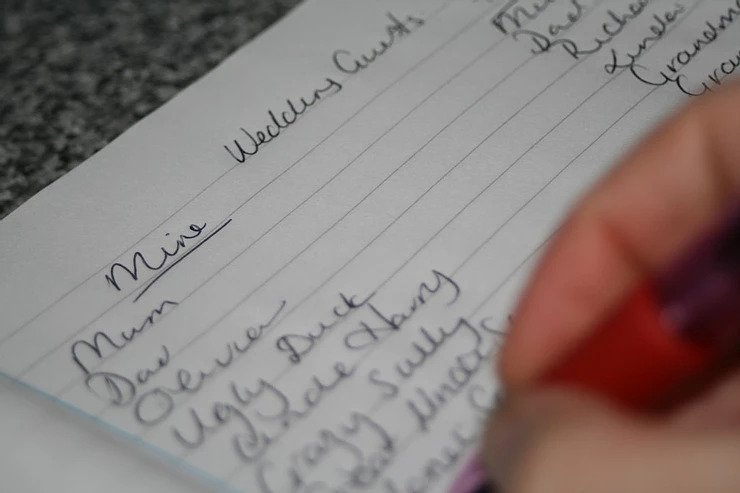 Wedding Guests
Mine
Mum
Dad
Olivia
Ugly Duck
Uncle Harry
Crazy Sally
Great Uncle
Dad
Richa
Linda
Grandm
Gra